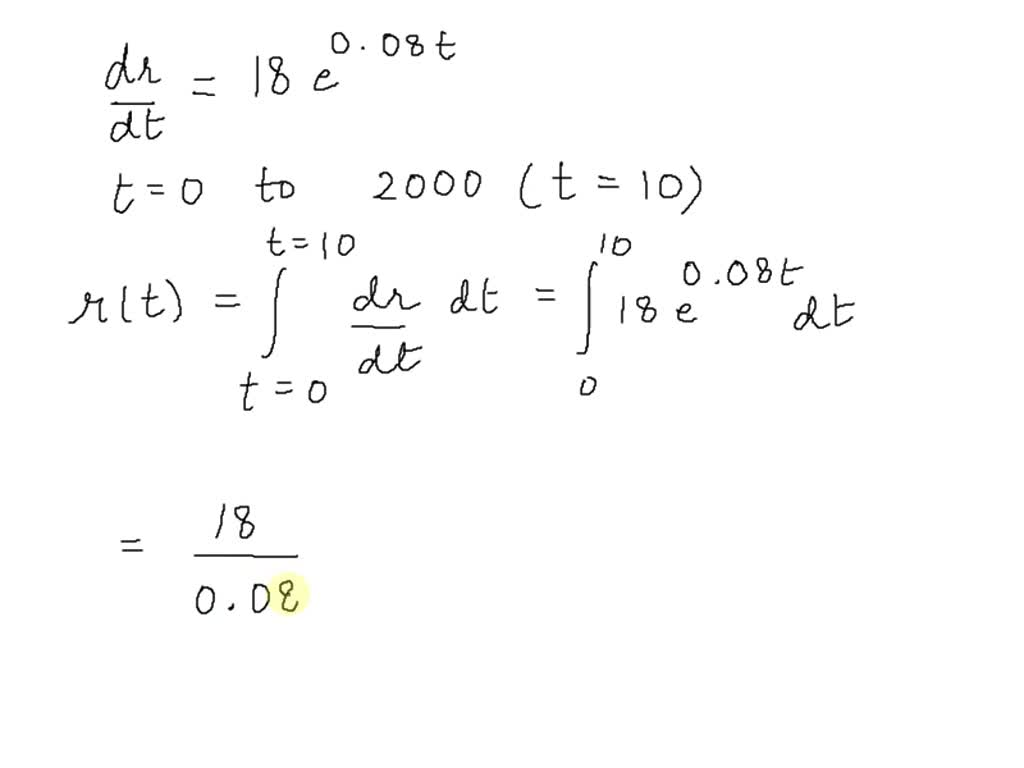 dr/dt = 18 e^0.08t
t = 0 to 2000 (t = 10)
r(t) = ∫_{t=0}^{t=10} dr/dt dt = ∫_0^10 18 e^0.08t dt
= 18/0.08